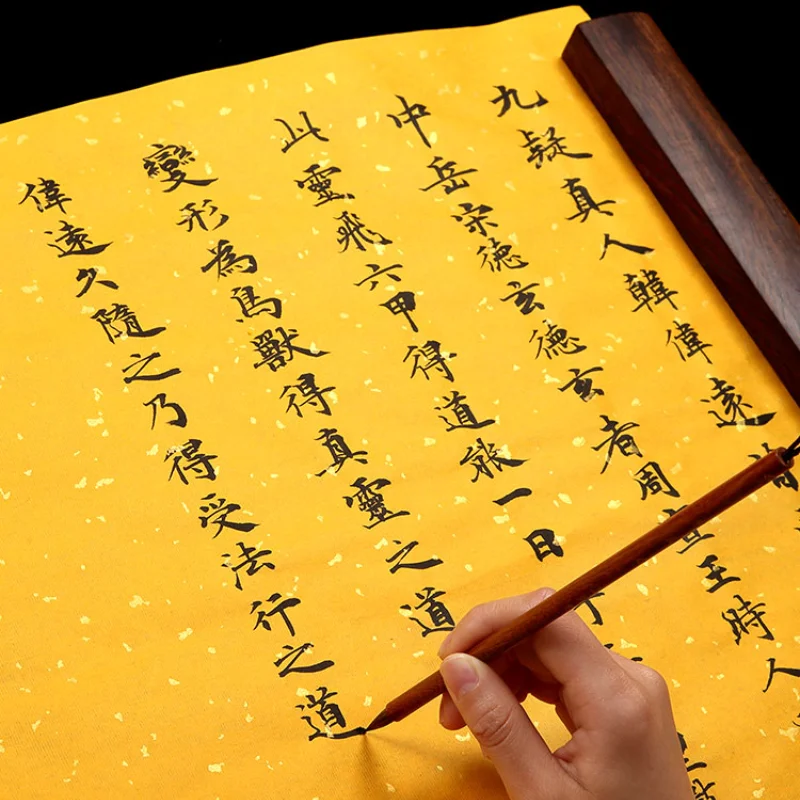 九疑真人韓偉遠昔
中岳宋德玄德玄者周宣王時人
此靈飛六甲得道能一日
變形為鳥獸得真靈之道
偉遠久隨之乃得受法行之道